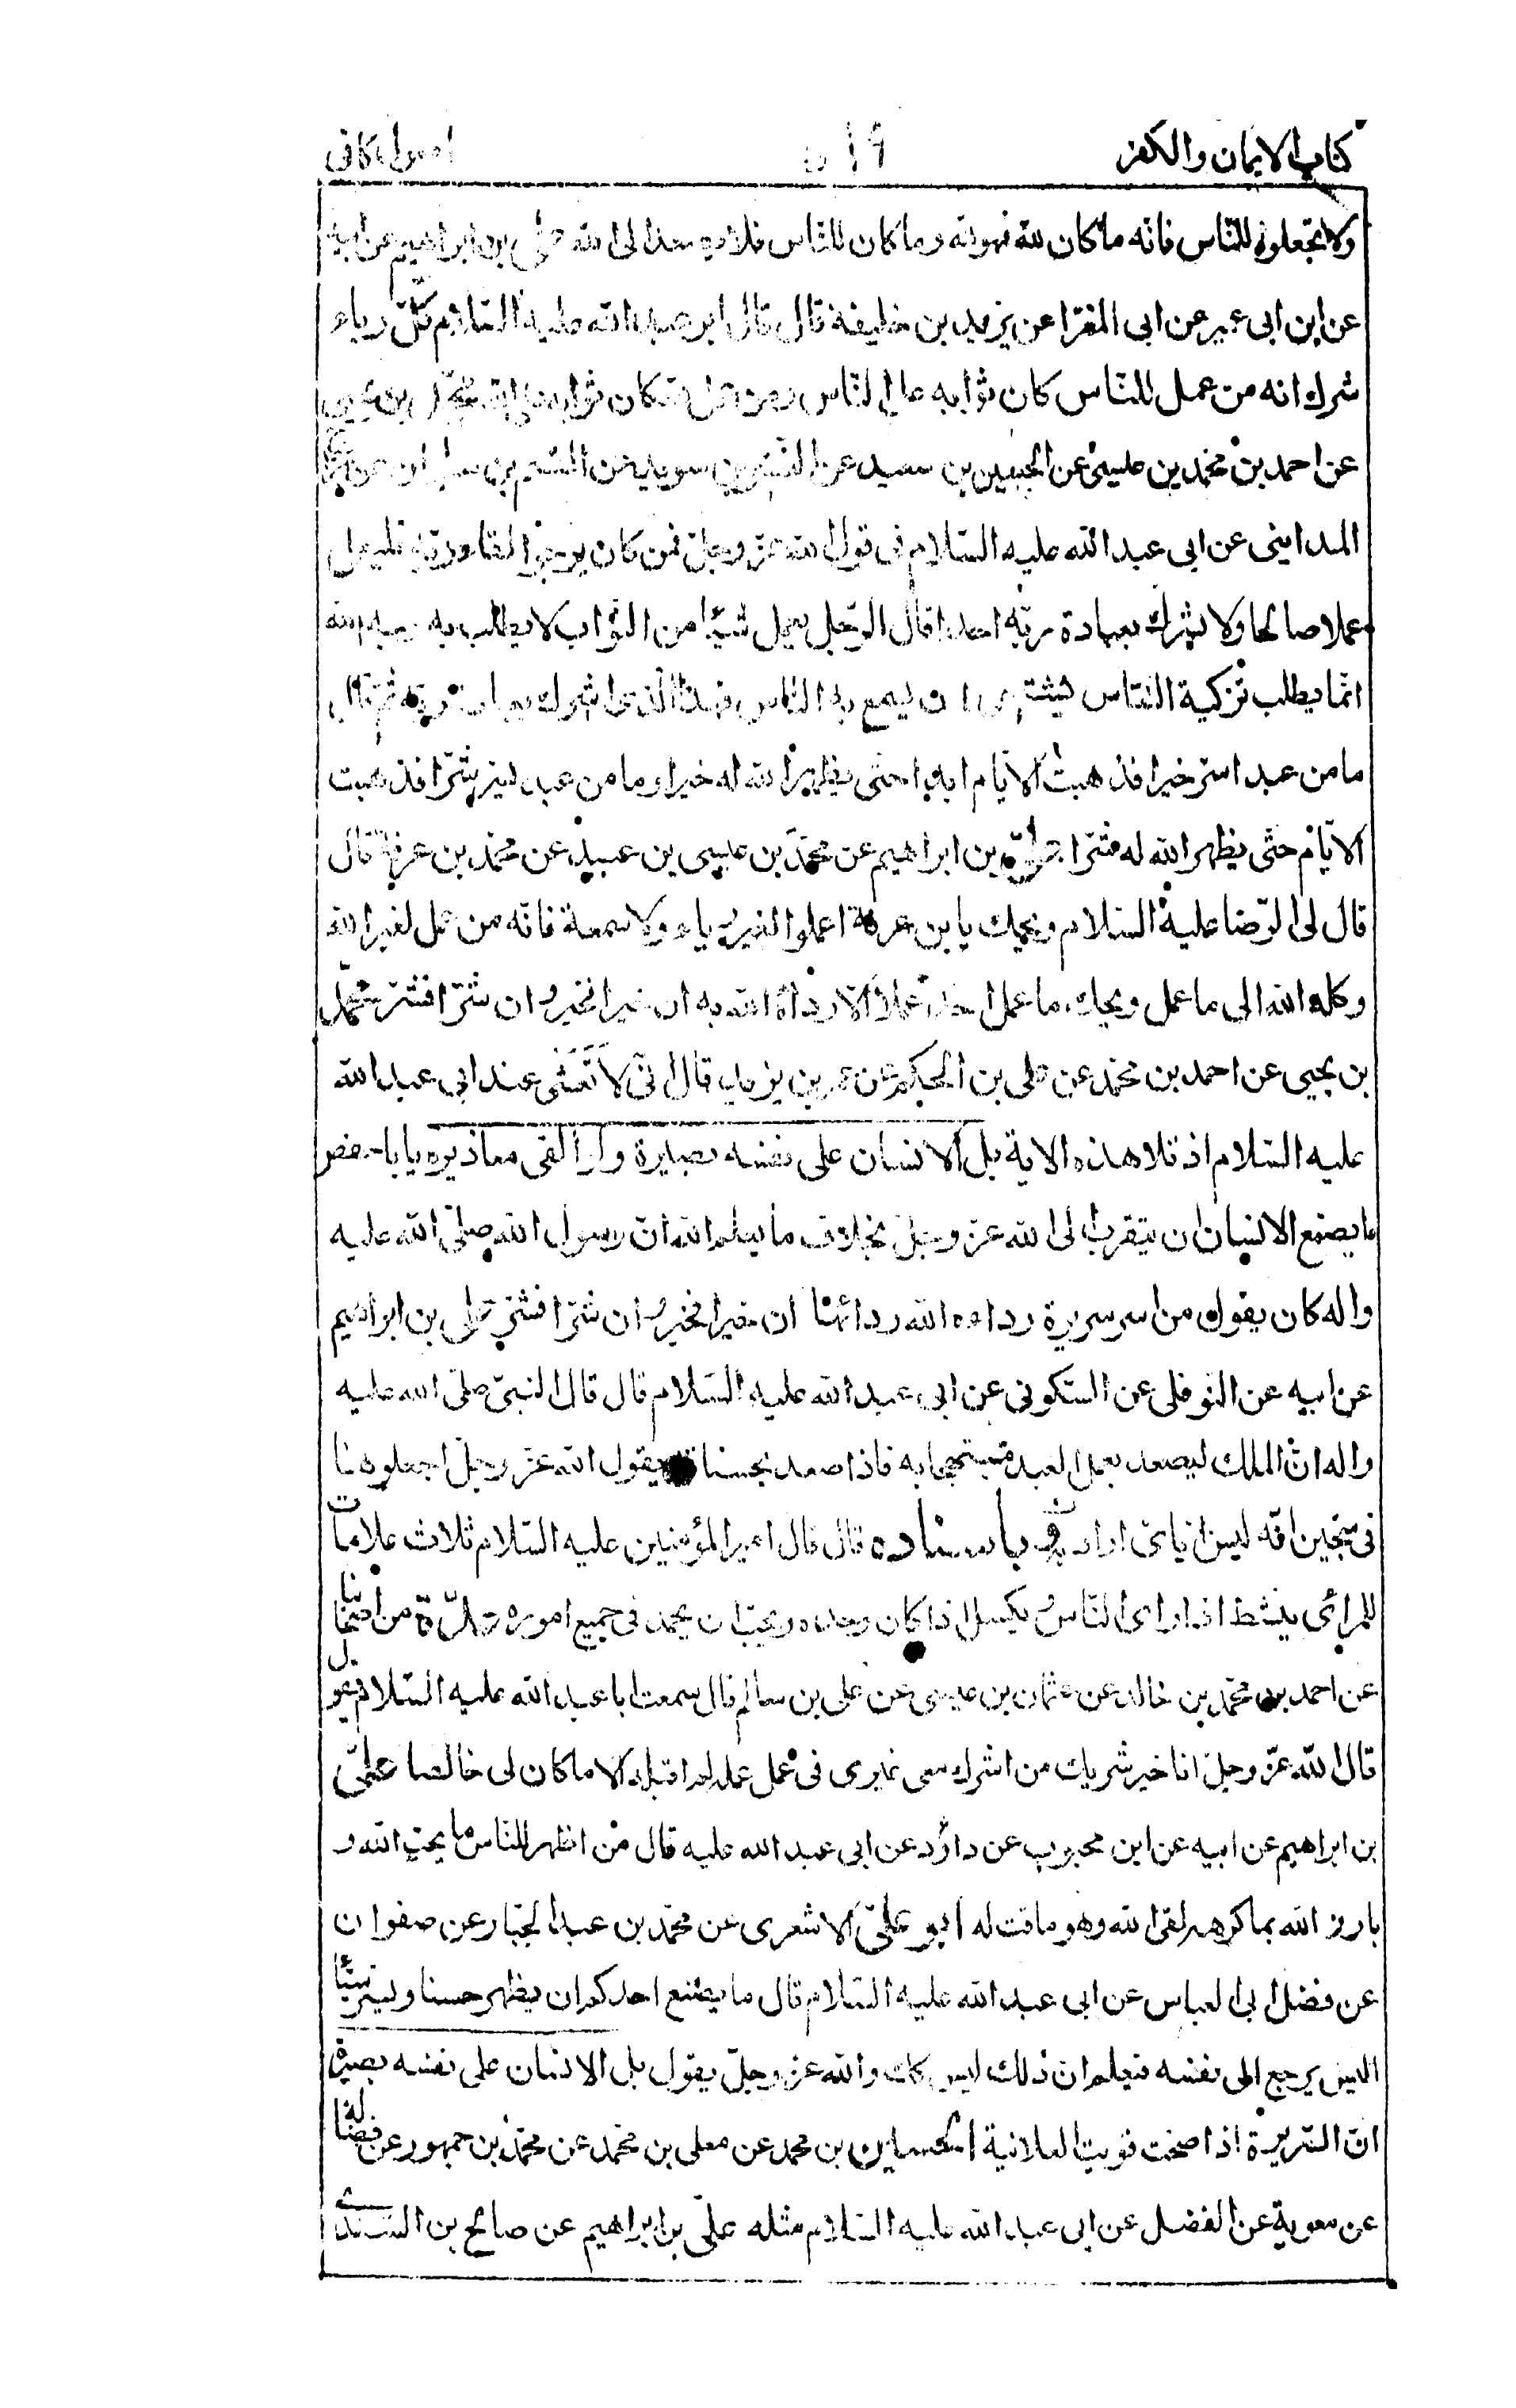 كتاب الايمان والكفر ۵۱۹ اصول كافى
ولا تجعلوه للناس فانه ما كان لله فهو لله وما كان للناس فلا يصعد الى الله على بن ابراهيم عن ابيه
عن ابن ابى عمير عن ابى المغرا عن يزيد بن خليفة قال قال ابو عبد الله عليه السلام كل رياء
شرك انه من عمل للناس كان ثوابه على الناس ومن عمل لله كان ثوابه على الله محمد بن يحيى
عن احمد بن محمد بن عيسى عن الحسين بن سعيد عن النضر بن سويد عن القسم بن سليمان عن جراح
المداينى عن ابى عبد الله عليه السلام فى قول الله عز وجل فمن كان يرجو لقاء ربه فليعمل
عملا صالحا ولا يشرك بعبادة ربه احدا قال الرجل يعمل شيئا من الثواب لا يطلب به وجه الله
انما يطلب تزكية الناس يشتهى ان يسمع به الناس فهذا الذى اشرك بعبادة ربه ثم قال
ما من عبد اسر خيرا فذهبت الايام ابدا حتى يظهر الله له خيرا وما من عبد يسر شرا فذهبت
الايام حتى يظهر الله له شرا على بن ابراهيم عن محمد بن عيسى بن عبيد عن محمد بن عرفة قال
قال لى الرضا عليه السلام ويحك يا بن عرفة اعملوا لغير رياء ولا سمعة فانه من عمل لغير الله
وكله الله الى ما عمل ويحك ما عمل احد عملا الا رداه الله به ان خيرا فخير وان شرا فشر محمد
بن يحيى عن احمد بن محمد عن على بن الحكم عن عمر بن يزيد قال انى لاتعشى عند ابى عبد الله
عليه السلام اذ تلا هذه الاية بل الانسان على نفسه بصيرة ولو القى معاذيره يا با حفص
ما يصنع الانسان ان يتقرب الى الله عز وجل بخلاف ما يعلم الله ان رسول الله صلى الله عليه
واله كان يقول من اسر سريرة رداه الله رداءها ان خيرا فخير وان شرا فشر على بن ابراهيم
عن ابيه عن النوفلى عن السكونى عن ابى عبد الله عليه السلام قال قال النبى صلى الله عليه
واله ان الملك ليصعد بعمل العبد مبتهجا به فاذا صعد بحسناته يقول الله عز وجل اجعلوها
فى سجين انه ليس اياى اراد بها وباسناده قال قال امير المؤمنين عليه السلام ثلاث علامات
للمرائى ينشط اذا راى الناس ويكسل اذا كان وحده ويحب ان يحمد فى جميع اموره عدة من اصحابنا
عن احمد بن محمد بن خالد عن عثمان بن عيسى عن على بن سالم قال سمعت ابا عبد الله عليه السلام يقول
قال الله عز وجل انا خير شريك من اشرك معى غيرى فى عمل عمله لم اقبله الا ما كان لى خالصا على
بن ابراهيم عن ابيه عن ابن محبوب عن داود عن ابى عبد الله عليه قال من اظهر للناس ما يحب الله و
بارز الله بما كرهه لقى الله وهو ماقت له ابو على الاشعرى عن محمد بن عبد الجبار عن صفوان
عن فضل ابى العباس عن ابى عبد الله عليه السلام قال ما يصنع احدكم ان يظهر حسنا ويسر سيئا
اليس يرجع الى نفسه فيعلم ان ذلك ليس كك والله عز وجل يقول بل الانسان على نفسه بصيرة
ان السريرة اذا صحت قويت العلانية الحسين بن محمد عن معلى بن محمد عن محمد بن جمهور عن فضالة
عن معوية عن الفضل عن ابى عبد الله عليه السلام مثله على بن ابراهيم عن صالح بن السندى